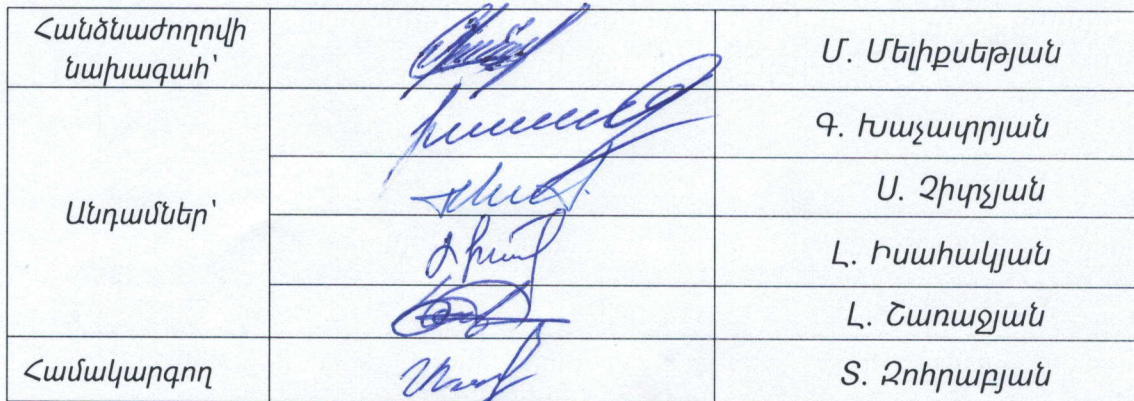 Հանձնաժողովի
նախագահ՝
Մ. Մելիքսեթյան
Գ. Խաչատրյան
Անդամներ՝
Ս. Չիտչյան
Լ. Իսահակյան
Լ. Շառաջյան
Համակարգող
Տ. Զոհրաբյան